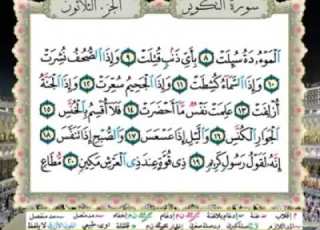 سورة التكوير
الجزء الثلاثون
الموءدة سئلت ٨ بأي ذنب قتلت ٩ وإذا الصحف نشرت
١٠ وإذا السماء كشطت ١١ وإذا الجحيم سعرت ١٢ وإذا الجنة
أزلفت ١٣ علمت نفس ما أحضرت ١٤ فلا أقسم بالخنس ١٥
الجوار الكنس ١٦ والليل إذا عسعس ١٧ والصبح إذا تنفس ١٨
إنه لقول رسول كريم ١٩ ذي قوة عند ذي العرش مكين ٢٠ مطاع